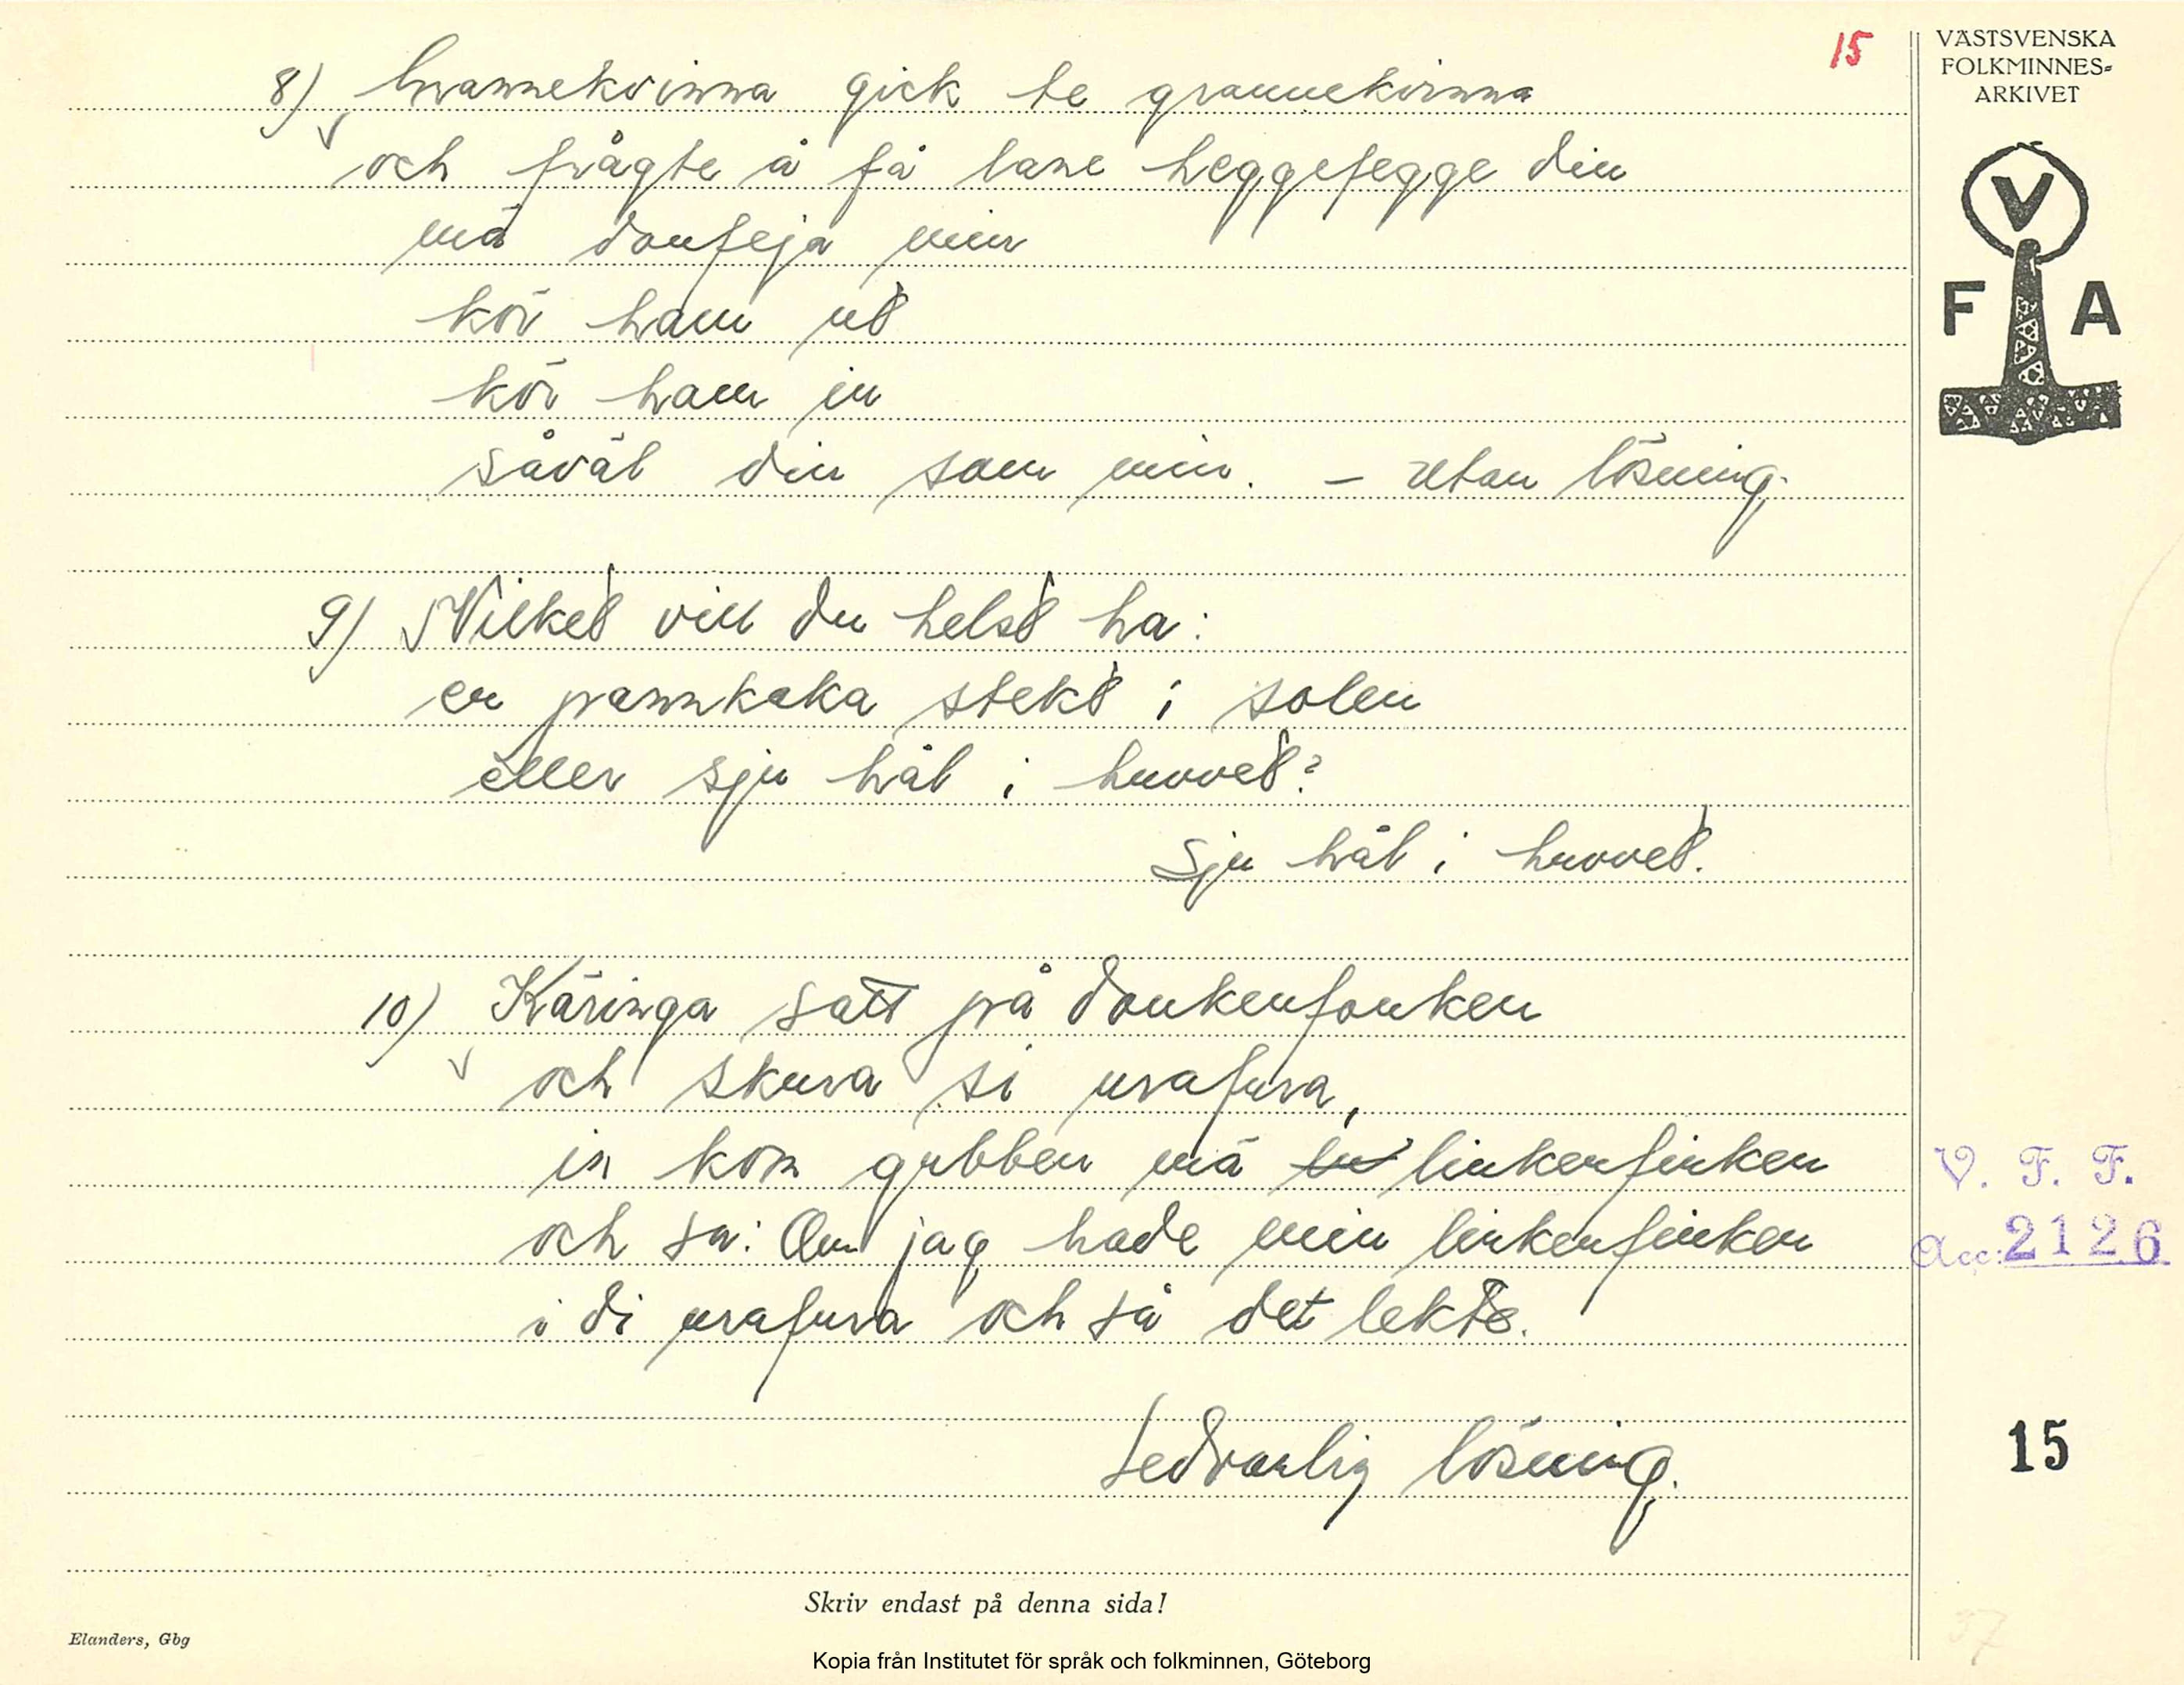 15
VÄSTSVENSKA
FOLKMINNES-
ARKIVET
V
F A
8) Grannekvinna gick te grannekvinna
och frågte å få lane heggefegge din
mä donfeja min
kör ham ut
kör ham in
såväl din som min. – utan lösning.
9) Vilket vill du helst ha:
en pannkaka stekt i solen
eller sju hål i huvvet?
Sju hål i huvvet.
10) Käringa satt på donkenfonken
och skura si urafura,
in kom gubben mä lin linkenfinken
och sa: Om jag hade min linkenfinken
i di urafura och så det lekte.
Sedvanlig lösning.
V. F. F.
Acc: 2126
15
Skriv endast på denna sida!
Elanders, Gbg
37
Kopia från Institutet för språk och folkminnen, Göteborg